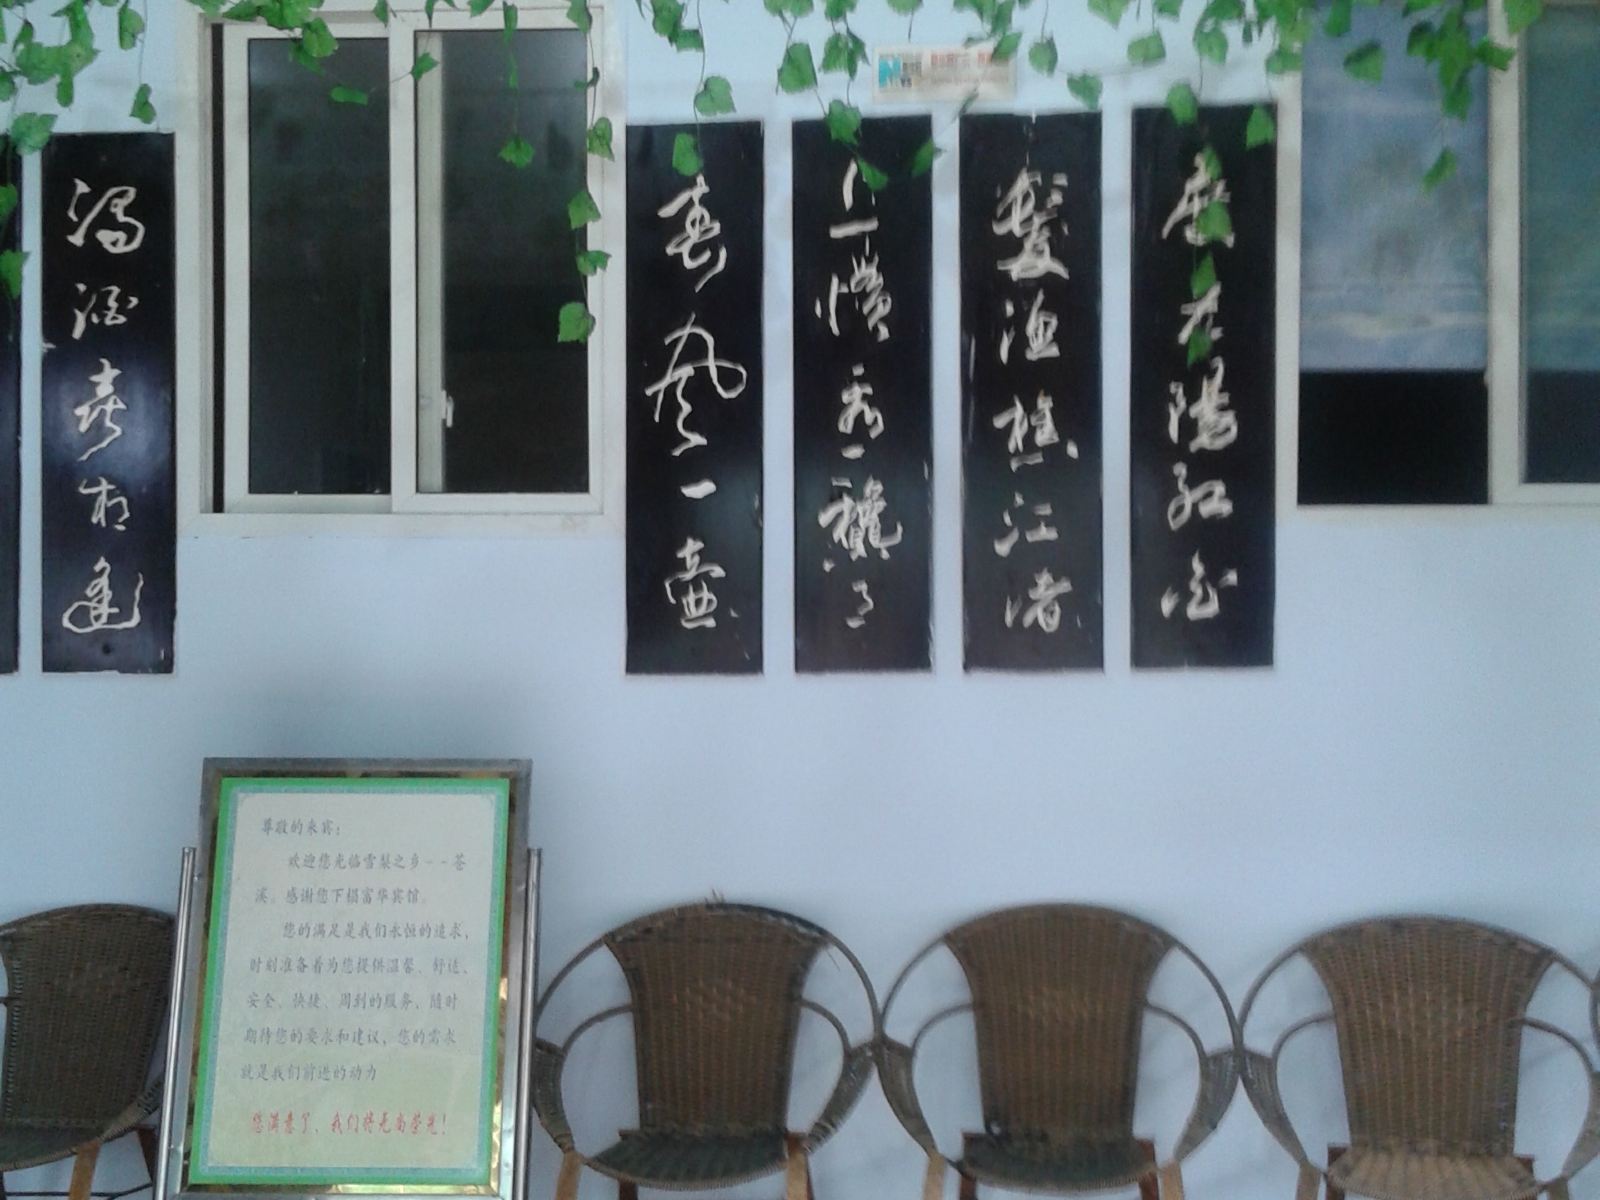 度夕陽紅白
髮漁樵江渚
上慣看秋月
春風一壺
濁酒喜相逢
尊敬的来宾：
欢迎您光临雪梨之乡--苍
溪。感谢您下榻富华宾馆。
您的满足是我们永恒的追求，
时刻准备着为您提供温馨、舒适、
安全、快捷、周到的服务，随时
期待您的要求和建议，您的需求
就是我们前进的动力
您满意了，我们将无尚荣光！